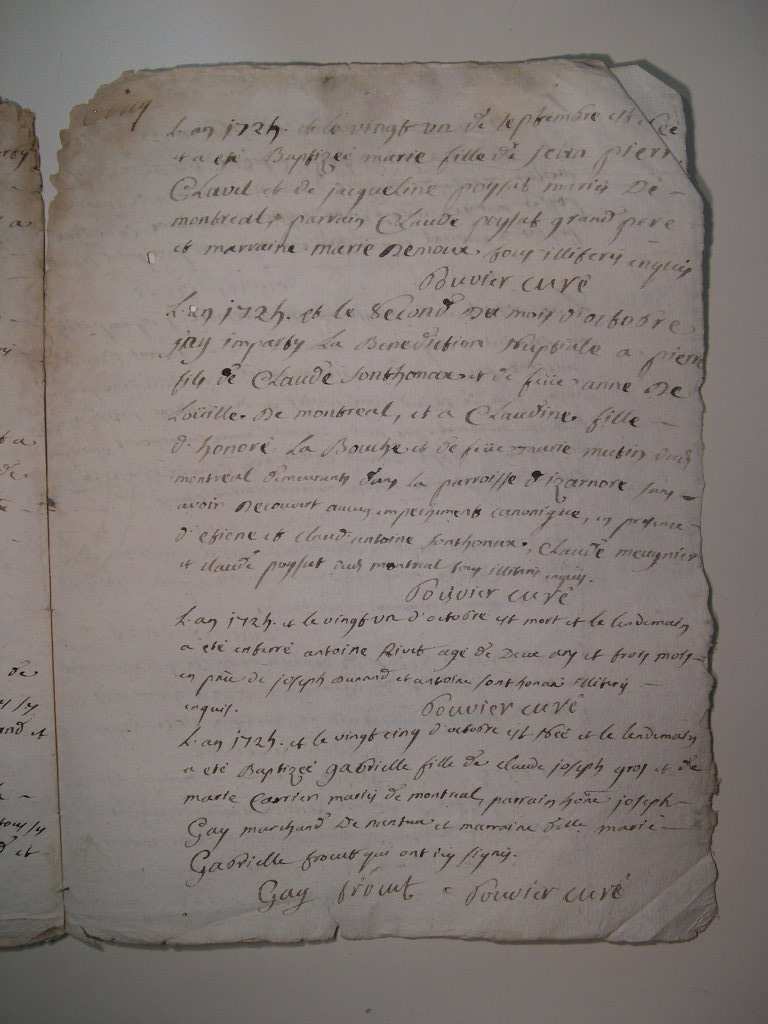 L'an 1724. et le vingt un de septembre est née
et a eté Baptizeé marie fille de jean pierr
Claud et de jacqueline poysat mariés De
montreal, parrain Claude poysat grand pere
et marraine marie Demoux, tous illiterés enquis
Bouvier curé
L'an 1724. et le second du mois d'octobre
jay imparty La Benediction Nuptiale a pierre
fils de Claude sonthonax et de feüe anne De
Loüille De montreal, et a Claudine fille
d'honoré La Bouche et de feüe marie mutin dud
montreal demeurants dans la parroisse d'izarnore sans
avoir Decouvert aucun empechement canonique, en presence
d'etiene et claud antoine sonthonax, Claude meugnier
et claude poysat dud montreal tous illiterés enquis.
Bouvier curé
L'an 1724. et le vingt un d'octobre est mort et le lendemain
a eté enterré antoine Rivet agé de Deux ans et trois mois
en pñce de joseph Durand et antoine sonthonax illiterés
enquis.
Bouvier curé
L'an 1724. et le vingt cinq d'octobre est néé et le lendemain
a eté Baptizeé gabrielle fille de claude joseph gros et de
marie Carrier mariés de montreal, parrain honê joseph
Gay marchand De nantua et marraine dlle marie
Gabrielle frouit qui ont icy signés.
Gay frouit Bouvier curé